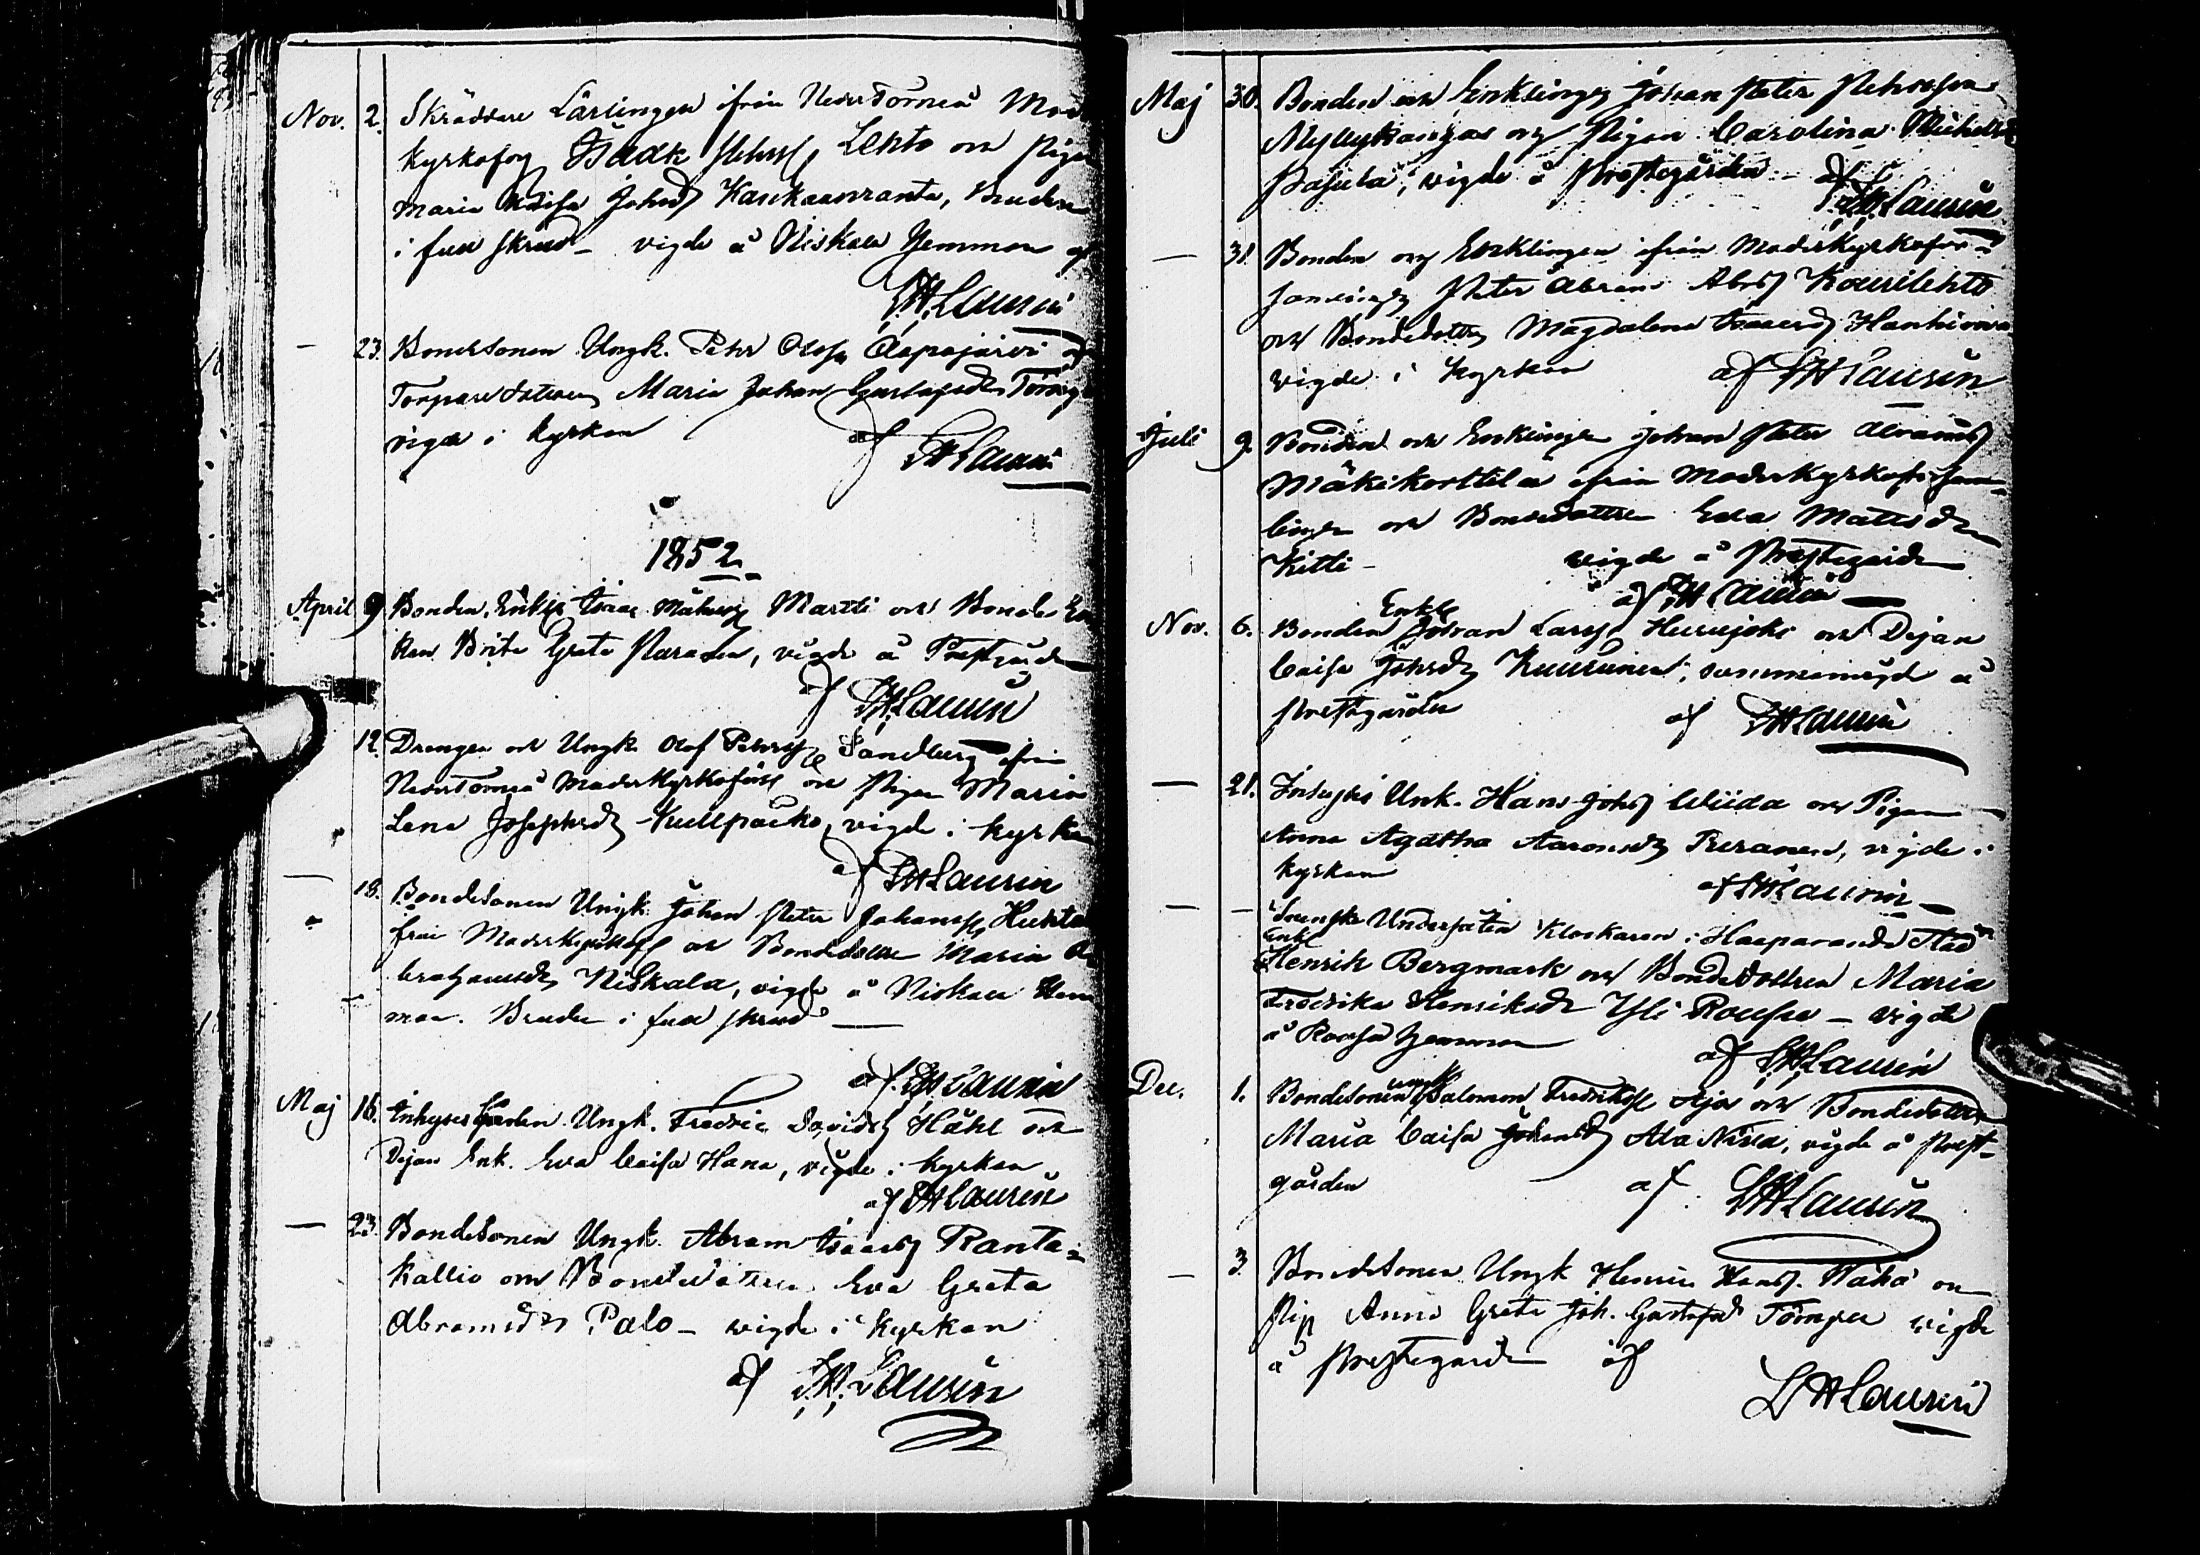 Nov. 2. Skräddare Lärlingen ifrån NederTorneå Mod
kyrkoförs Isaak Pehrss Lehto och Pigan
Maria Kaisa Johsd Kaukaanranta, Bruden
i full skrud – vigde å Niskala Hemman af
LHLaurin
— 23. Bondesonen Ungk. Pehr Olofss Aapajärvi och
Torpare dotteren Maria Johan Gustafsdr Törmä
vigde i kyrkan af LHLaurin
1852
April 9 Bonden, Enkl Isaac Martti och Bonde En
kan Brita Greta, vigde å Prestgården
af LHLaurin
12. Drengen och Ungk. Olof Pehrss Sandberg ifrån
NederTorneå Moderkyrkoförs och Pigan Maria
Lena Josephsd, vigde i kyrkan
af LHLaurin
— 18. Bondesonen Ungk. Johan Peter Johanss Huhta
från Moderkyrkof och Bondedottren Maria A
brahamsdr Niskala, vigde å Niskala Hem
man. Bruden i full skrud —
af LHLaurin
Maj 16. Inhyses Karlen Ungk. Fredric Davids och
Pigan Enk. Eva Caisa Hana, vigde i kyrkan
af LHLaurin
— 23. Bondesonen Ungk. Abram Isaacs Ranta-
kallio och Bondedottren Eva Greta
Abramsdr Palo – vigde i kyrkan
af LH Laurin
Maj 30. Bonden och Enklingen Johan Peter Pehrsson
Myllykangas och Pigan Carolina Michelsd
, vigde å Prestegården – af
LHLaurin
— 31. Bonden och Enklingen ifrån Moderkyrkoför-
samling Peter Abram Abrs Kourilehto
och Bondedottren Magdalena Isaacsd
vigde i Kyrkan af LHLaurin
Juli 9. Bonden och Enklingen Johan Peter Abrams
Mäkikorttila ifrån Moderkyrkoförsam-
lingen och Bondedottren Eva Matsdr
Kitti – vigde å Prestegården
af LHLaurin —
Enkl
Nov. 6. Bonden Johan Larss Hurujoki och Pigan
Caisa Johsd Kuusunen, sammanvigde å
Prestgården af LHLaurin
— 21. Inhyses Unk. Hans Johs Wiida och Pigan —
Anna Agatha Aaronsd, vigde i
kyrkan af LHLaurin —
— — Svenske Undersåten Klockaren i Haaparanda Stad
Enkl
Henrik Bergmark och Bondedottren Maria
Fredrika Henriksdr Yli Rousu – vigde
å Rousu hemman af LHLaurin
ungk
Dec. 1. Bondesonen Salomon Fredrikss och Bondedottren
Maria Caisa Johansd Ala Nissa, vigde å Prest-
gården af LHLaurin
— 3. Bondesonen Ungk Henric Hans. och
Pig Anna Greta Joh. Gustafsd Törmä vigde
å Prestegården af
LHLaurin